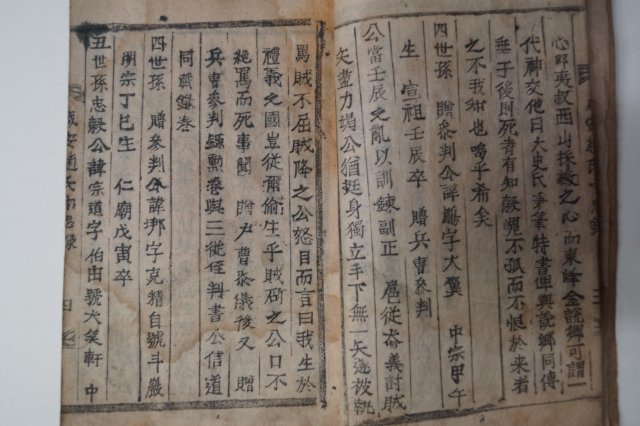 心卽夷叔西山採薇之心而東峰金說卿可謂一
代神交他日大史氏爭筆特書俾與說卿同傳
垂于後則死者有知毅魄不孤而不恨於來者
之不我知也嗚乎希矣
四世孫 贈參判公諱鵬字大翼 中宗甲午
生 宣祖壬辰卒 贈兵曹參判
公當壬辰之亂以訓鍊副正 扈從奮義討賊
矢盡力竭公猶挺身獨立手下無一矢遂被執
罵賊不屈賊降之公怒目而言曰我生於
禮義之國豈從爾偷生乎賊斫之公口不
絶罵而死事聞 贈戶曹參議後又 贈
兵曹參判錄勳卷與三從侄判書公信道
同載錄卷
四世孫 贈參判公諱邦字克精自號斗巖
明宗丁巳生 仁廟戊寅卒
五世孫忠毅公諱宗道字伯由號大笑軒 中
咸安趙氏
四